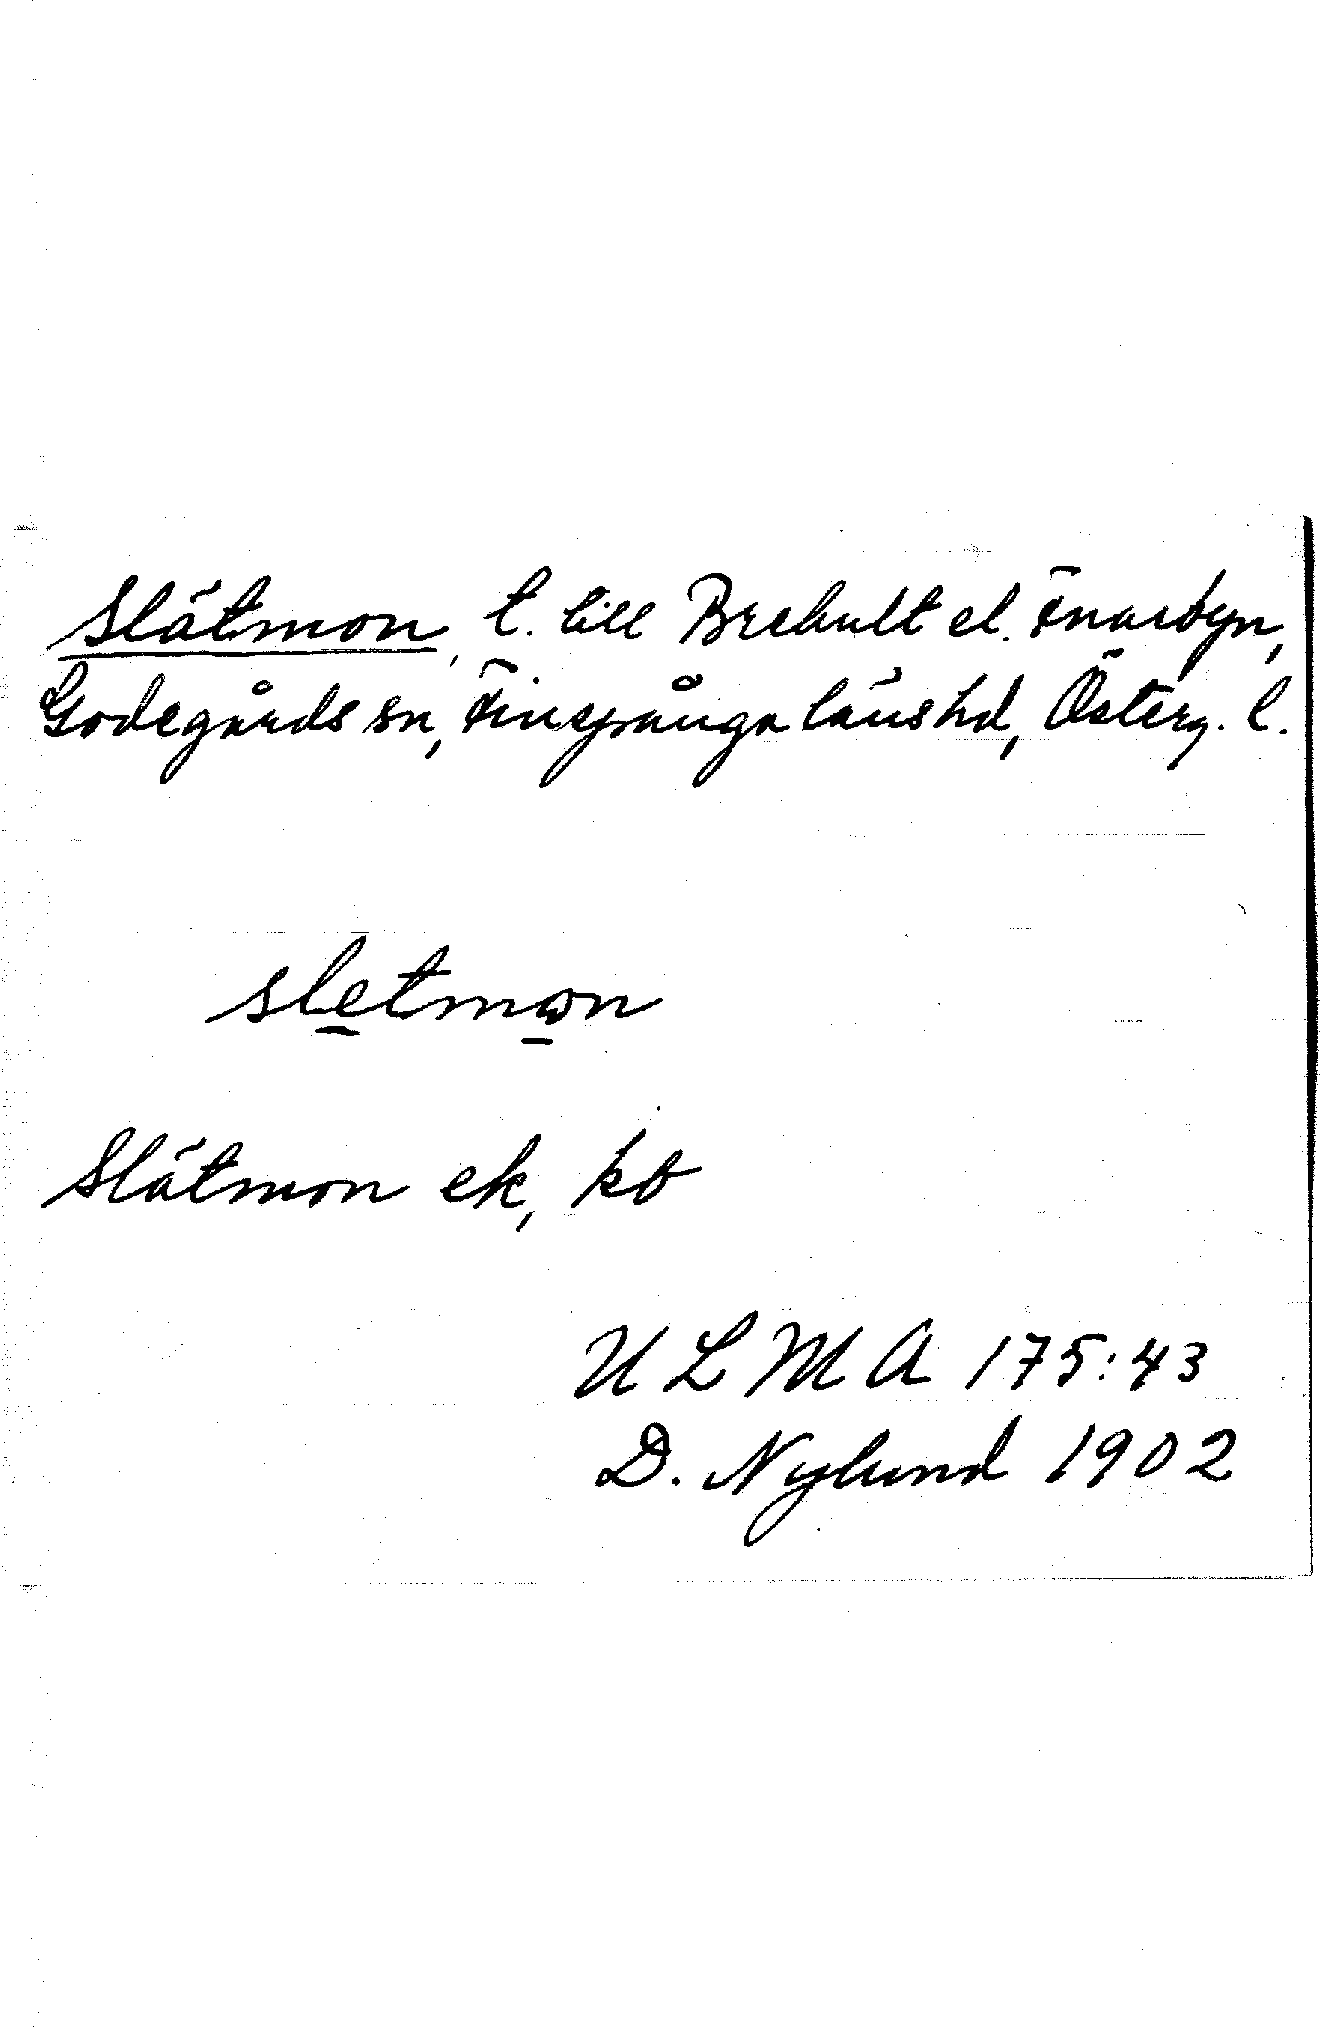 Slätmon, t. till Brehult el. Fnarbyn,
Godegårds sn, Finspånga läns hd, Österg. l.
sletmon
Slätmon ek, kb
ULMA 175:43
D. Nylund 1902